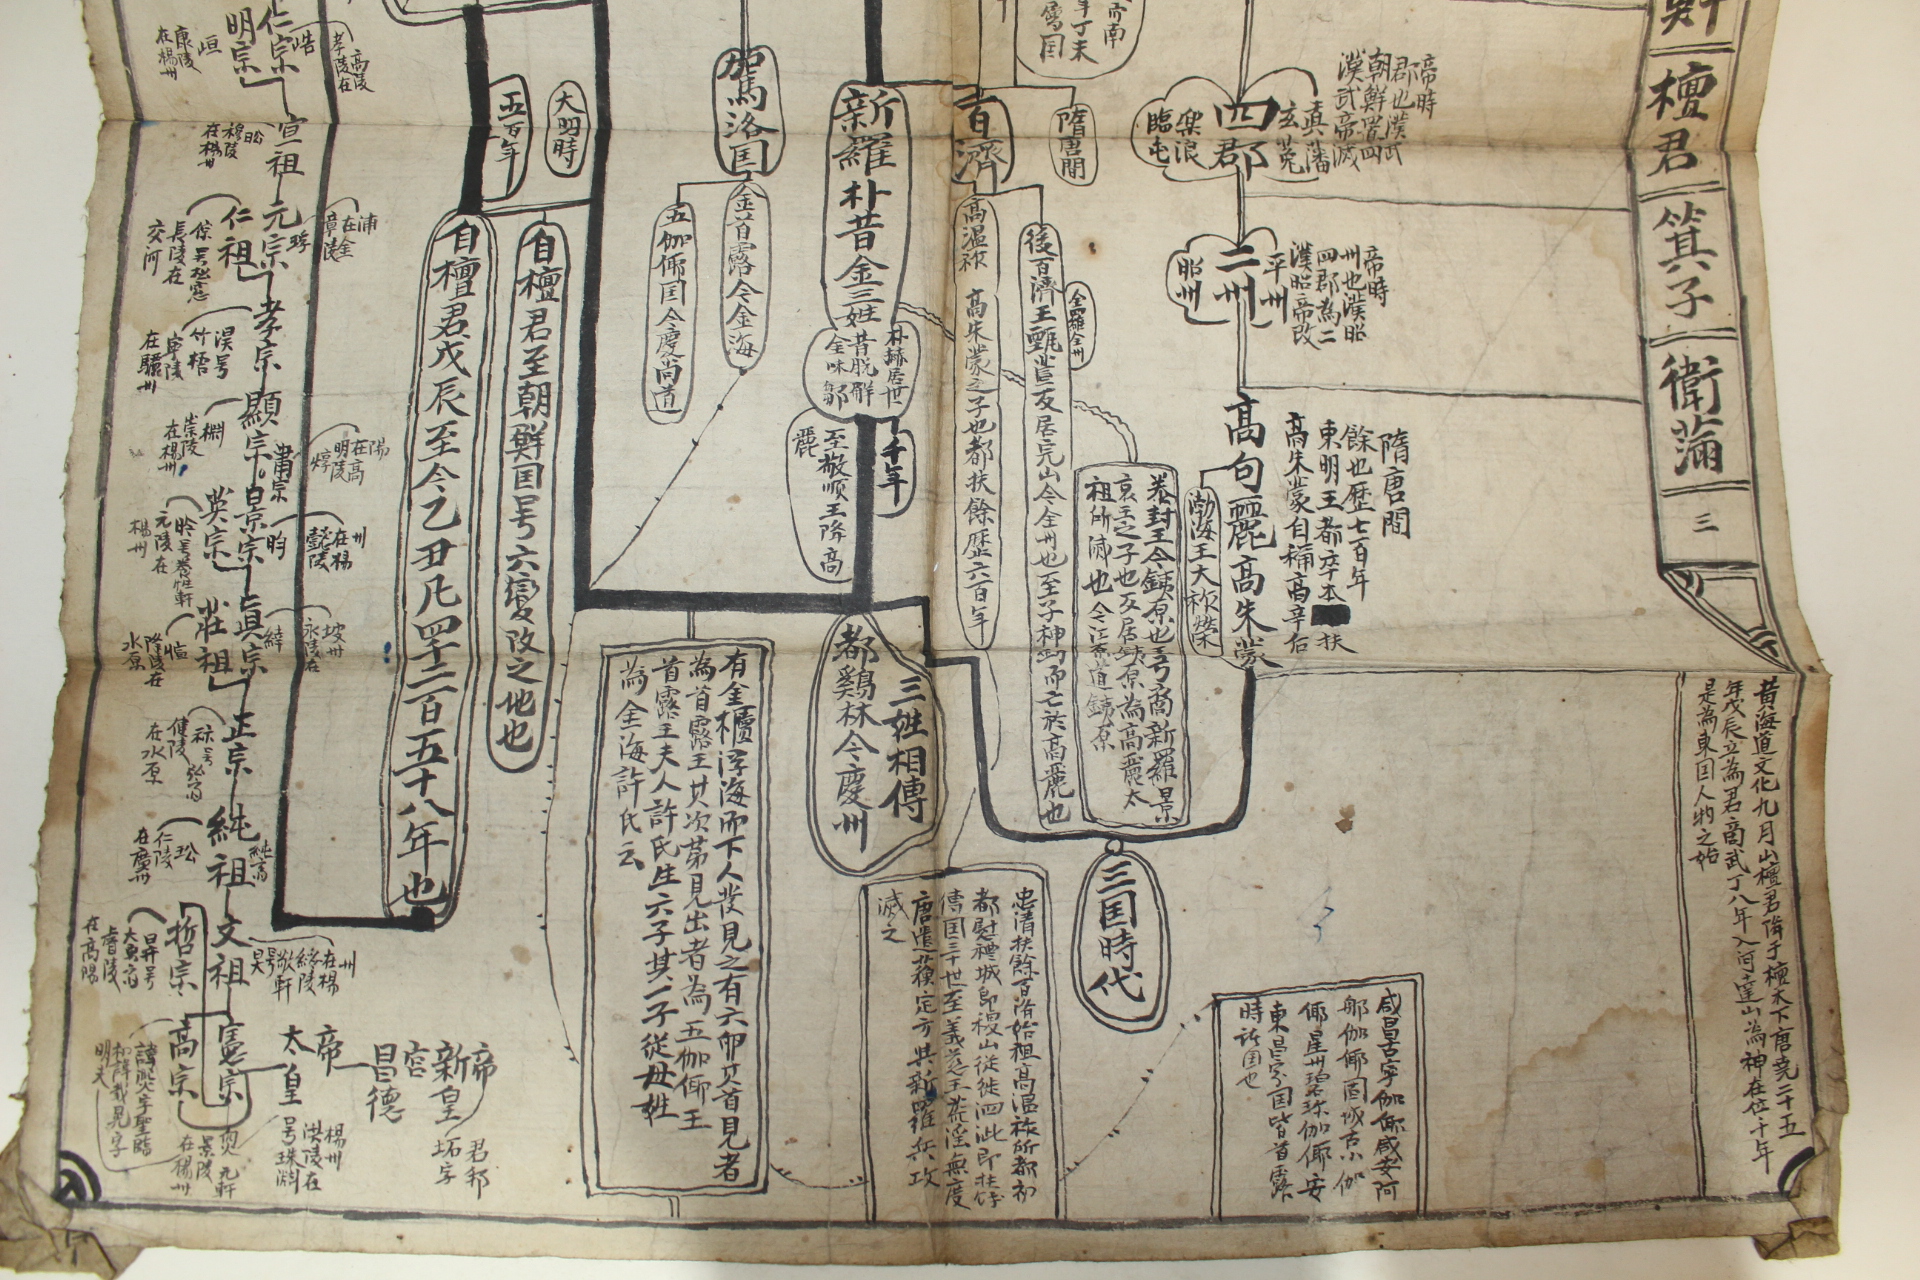 檀君
箕子
衛滿
三
黃海道文化九月山檀君降于檀木下唐堯二十五
年戊辰立為君商武丁八年入阿達山為神在位千年
是為東国人物之始
帝時
郡也漢武
朝鮮置四
漢武帝滅
真藩
玄菟
四郡
樂浪
臨屯
帝時
州也漢昭
四郡為二
漢昭帝改
平州
二州
昭州
隋唐間
餘也歷七百年
東明王都卒本扶
高朱蒙自稱高辛后
高句麗高朱蒙
渤海王大祚榮
隋唐間
百濟
高温祚 高朱蒙之子也都扶餘歷六百年
後百濟王甄萱反居完山今全州也至子神劎而亡於高麗也
全羅全州
泰封王今鐵原也弓裔新羅景
哀王之子也反居鐵原為高麗太
祖所滅也 今江原道鐵原
三国時代
咸昌古寧伽倻咸安阿
耶伽倻固城古小伽
倻星州碧珍伽倻安
東昌寧国皆首露
時諸国也
忠清扶餘百濟始祖高温祚所都初
都慰禮城即稷山後徙泗沘即扶餘
傳国三十世至義慈王荒淫無度
唐遣蘇定方與新羅兵攻
滅之
新羅朴昔金三姓
朴赫居世
昔脱解
金味鄒
千年
至敬順王降高
麗
三姓相傳
都鷄林今慶州
駕洛国
金首露今金海
五伽倻国今慶尚道
有金櫃浮海而下人發見之有六卵其首見者
為首露王其次第見出者為五伽倻王
首露王夫人許氏生六子其一子從母姓
為金海許氏云
大明時
五百年
自檀君至朝鮮国号六變改之他也
自檀君戊辰至今乙丑凡四千二百五十八年也
仁宗
明宗
峘
康陵
在楊州
孝陵在
高陵
宣祖
昖
穆陵
在楊州
元宗
仁祖
章陵
在金
浦
倧号松窓
長陵在
交河
孝宗
淏号
竹梧
寧陵
在驪州
顯宗
棩
崇陵
在楊州
肅宗
焞
明陵
在高
陽
景宗
昀
懿陵
在楊
州
英宗
昑号養性軒
元陵在
楊州
真宗
緈
永陵在
坡州
莊祖
愃
隆陵在
水原
正宗
祘号
弘齋
健陵
在水原
純祖
純齋
玜
仁陵
在廣州
文祖
旲号敬軒
綏陵
在楊
州
哲宗
昪号
大勇齋
睿陵
在高陽
憲宗
奐 元軒
景陵
在楊州
高宗
諱㷩字聖臨
初諱載晃字
明夫
太皇帝
号珠淵
洪陵在
楊州
昌德宮
新皇帝
坧字
君邦